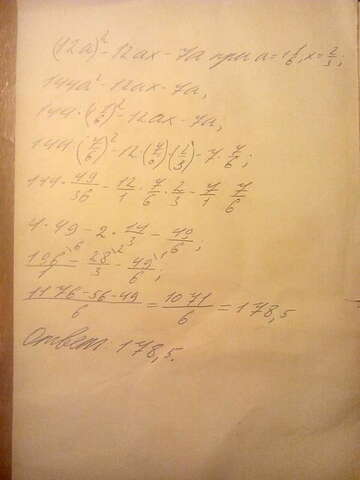 (12a)² - 12ax - 7a при a = 1 1/6, x = 2/3;
144a² - 12ax - 7a;
144 · (1 1/6)² - 12ax - 7a;
144 · (7/6)² - 12 · (7/6) · (2/3) - 7 · 7/6;
144 · 49/36 - 12/1 · 7/6 · 2/3 - 7/1 · 7/6
4 · 49 - 2 · 14/3 - 49/6;
196/1 - 28/3 - 49/6;
1176-56-49/6 = 1071/6 = 178,5
Ответ: 178,5.